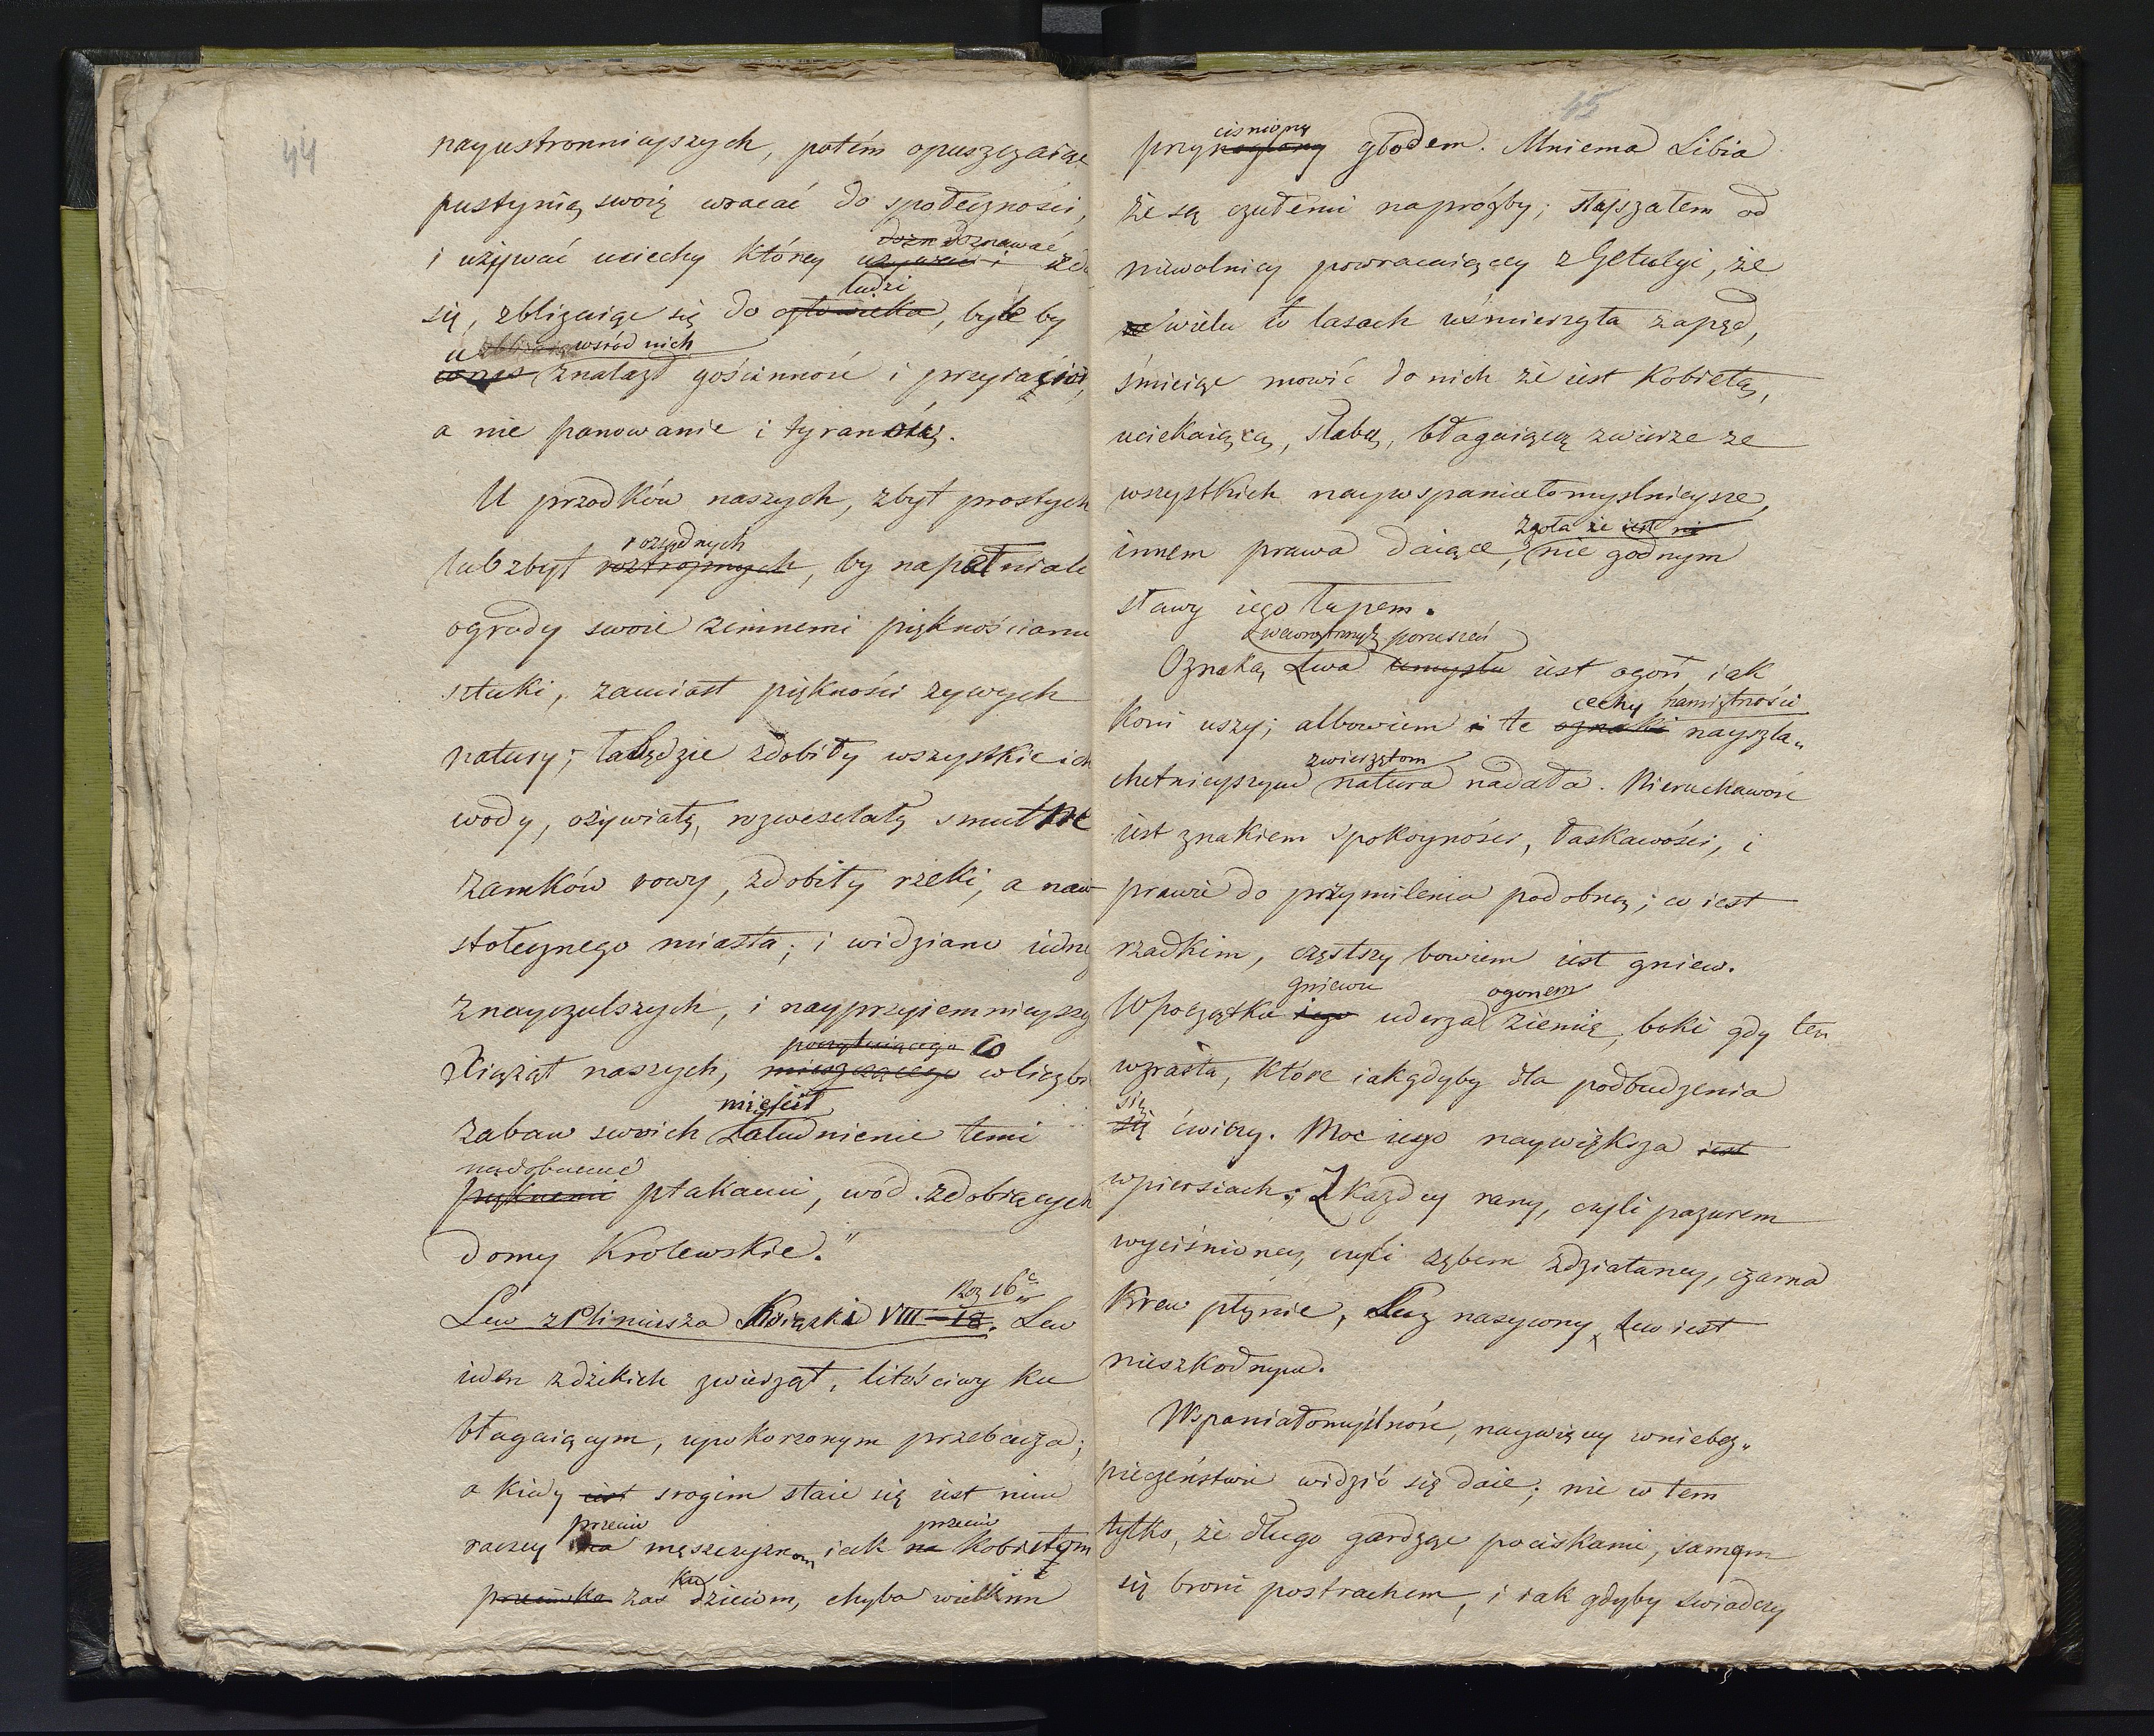 44
nayustronnieyszych, potém opuszczaiąc
pustynią swoią wracać do społeczności,
i używać uciechy którey doznawać zda
się, zbliżaiąc się do człowieka, byle by
ludzi
u wsród nich
znalazł gościnność i przyiaźń,
a nie panowanie i tyranów.
U przodków naszych, zbyt prostych
rozsądnych
lub zbyt roztropnych, by napełniali
ogrody swoie zimnemi pięknościami
sztuki, zamiast piękności żywych
natury; łabędzie zdobiły wszystkie ich
wody, ożywiały, rozweselały smutne
zamków rowy, zdobiły rzeki, a naw
stołecznego miasta; i widziano iedne
znayczulszych, i nayprzyiemnieyszy
poczytuiącego to
Xiążąt naszych, mieszczącego wliczbi
mieście
zabaw swoich zaludnienie temi
nadobnemi
pięknemi ptakami, wód zdobiących
domy Krolewskie."
Roz 16
Lew z Pliniusza Książki VIII - 18. Lew
ieden zdzikich zwierząt, litościwy ku
błagaiącym, upokorzonym przebacza;
a kiedy iest srogim staie się iest nim
przeciw przeciw
raczey na męszczyznom iak na kobietom
ku
przeciwko zas dzieciom, chyba wielkim
45
ciśniony
przynaglony głodem. Mniema Libia
że są czułemi naprośby; słyszałem od
niewolnicy powracaiącey z Getulyi, że
wielu to lasach uśmierzyła zapęd,
śmieiąc mowić do nich że iest kobietą,
uciekaiącą, słabą, błagaiącą zwierze ze
wszystkich naywspaniałomyslnieysze,
zgoła że iest ni
innem prawa daiące, nie godnym
sławy iego łupem.
wewnętrznych poruszeń
Oznaką Lwa umysłu iest ogon iak
cechy namiętności
koni uszy; albowiem i te oznaki nayszla„
zwierzętom
chetnieyszym natura nadała. Nieruchawość
iest znakiem spokoyności, łaskawości, i
prawie do przymilenia podobną; co iest
rzadkim, częstszy bowiem iest gniew.
gniewu ogonem
Wpoczątku iego uderza ziemię, boki gdy ten
wzrasta, które iakgdyby dla podbudzenia
się
się ćwiczy. Moc iego naywiększa iest
wpiersiach; Zkażdey rany, czyli pazurem
wyciśnioney, czyli zębem zdziałaney, czarna
krew płynie, Lecz nasycony Lew iest
nieszkodnym.
Wspaniałomyślność, naywięcey wniebez„
pieczeństwie widzić się daie; nie w tem
tylko, że długo gardząc pociskami, samym
się broni postrachem, i iak gdyby swiadczy